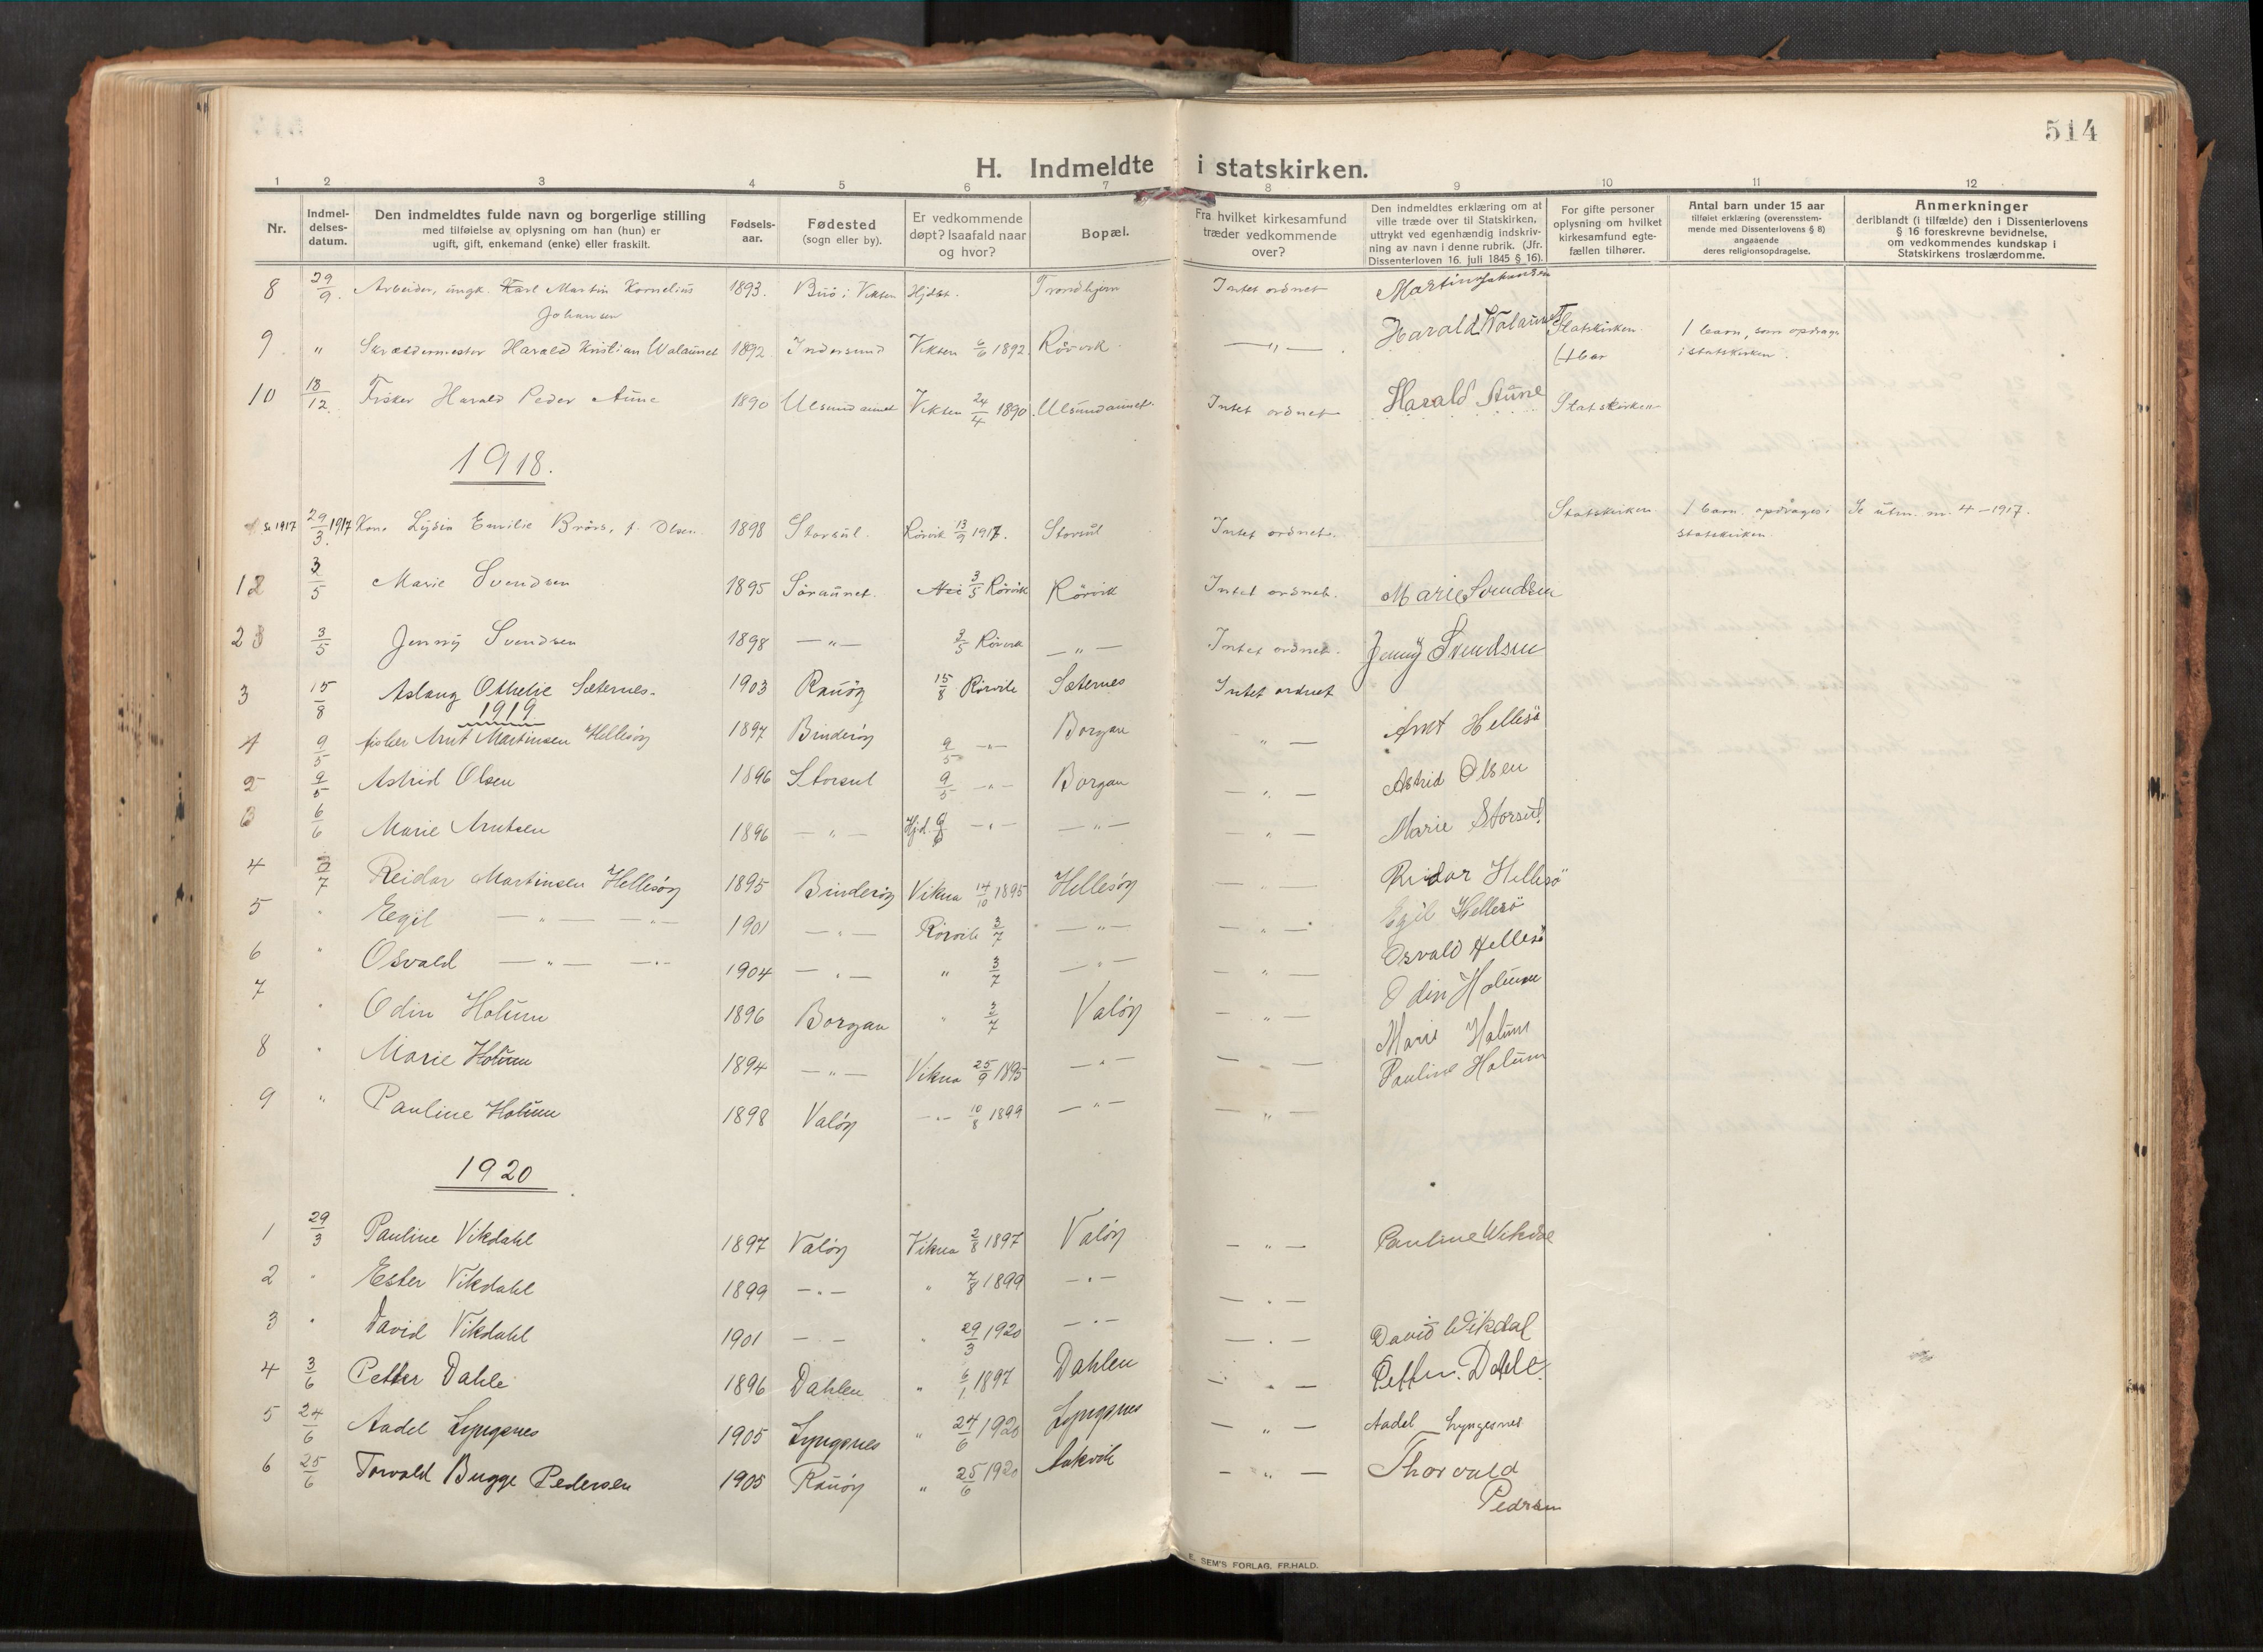 514
H. Indmeldte i statskirken.
1 2 3 4 5 6 7 8 9 10 11 12
Nr.
Indmel-
delses-
datum.
Den indmeldtes fulde navn og borgerlige stilling
med tilføielse av oplysning om han (hun) er
ugift, gift, enkemand (enke) eller fraskilt.
Fødsels-
aar.
Fødested
(sogn eller by).
Er vedkommende
døpt? Isaafald naar
og hvor?
Bopæl.
Fra hvilket kirkesamfund
træder vedkommende
over?
Den indmeldtes erklæring om at
ville træde over til Statskirken,
uttrykt ved egenhændig indskriv-
ning av navn i denne rubrik. (Jfr.
Dissenterloven 16. juli 1845 § 16).
For gifte personer
oplysning om hvilket
kirkesamfund egte-
fællen tilhører.
Antal barn under 15 aar
tilføiet erklæring (overensstem-
mende med Dissenterlovens § 8)
angaaende
deres religionsopdragelse.
Anmerkninger
deriblandt (i tilfælde) den i Dissenterlovens
§ 16 foreskrevne bevidnelse,
om vedkommendes kundskap i
Statskirkens troslærdomme.
8 29/9. Arbeider, ungk. Karl Martin Kornelius 1893. Buö i Vikten Hjdbt. Trondhjem Intet ordnet Martin Johansen
Johansen
9 " Skræddermester Harald Kristian Walaunet 1892 Indersund Vikten 6/6 1892. Rörvik —"— Harald Walaunet Statskirken 1 barn, som opdrages
i statskirken.
10 18/12. Fisker Harald Peder Aune 1890 Ulsundaunet Vikten 24/4 1890. Ulsundaunet. Intet ordnet Harald Aune Statskirken
1918.
Se 1917 29/3 1917 Kone Lydia Emilie Brörs, f. Olsen. 1898 Storsul. Rörvik 13/9 1917. Storsul Intet ordnet. Statskirken 1 barn opdrages i Se utm. nr. 4 – 1917.
statskirken.
1 3/5 Marie Svendsen 1895 Söraunet. Nei 3/5 Rörvik Rörvik Intet ordnet. Marie Svendsen
2 3/5 Jenny Svendsen 1898 —"— 3/5 Rörvik —"— Intet ordnet. Jenny Svendsen
3 15/8 Aslaug Othelie Sæternes. 1903 Rauöy 15/8 Rörvik Sæternes Intet ordnet
1919
1 9/5 fisker Arnt Martinsen Hellesöy 1897 Binderöy 9/5 —"— Borgan —"— Arnt Hellesö
2 9/5 Astrid Olsen 1896 Storsul 9/5 —"— Borgan —"— Astrid Olsen
3 6/6 Marie Arntsen 1896 —"— Hjd. 9/6 —"— —"— —"— Marie Storsul.
4 3/7 Reidar Martinsen Hellesöy 1895 Binderöy Vikna 14/10 1895 Hellesöy —"— Reidar Hellesö
5 " Eegil —"— —"— 1901 —"— Rörvik 3/7 —"— —"— Egil Hellesö
6 " Osvald —"— —"— 1904 —"— " 3/7 —"— —"— Osvald Hellesö
7 " Odin Holum 1896 Borgan " 3/7 Valöy —"— Odin Holum
8 " Marie Holum 1894 —"— Vikna 25/9 1895 —"— —"— Marie Holum
9 " Pauline Holum 1898 Valöy —"— 10/8 1899 —"— —"— Pauline Holum
1920
1 29/3 Pauline Vikdahl 1897 Valöy Vikna 2/8 1897 Valöy —"— Pauline Wikdal
2 " Ester Vikdahl 1899 —"— " 7/8 1899 —"— —"—
3 " David Vikdahl 1901 —"— " 29/3 1920 —"— —"— David Wikdal
4 3/6 Petter Dahle 1896 Dahlen " 6/1 1897 Dahlen —"— Petter Dahle.
5 24/6 Aadel Lyngsnes 1905 Lyngsnes " 24/6 1920 Lyngsnes —"— Aadel Lyngesnes
6 25/6 Torvald Bugge Pedersen 1905 Rauöy " 25/6 1920 Aakvik —"— Thorvald
Pedrsen
E. SEM'S FORLAG, FR.HALD.